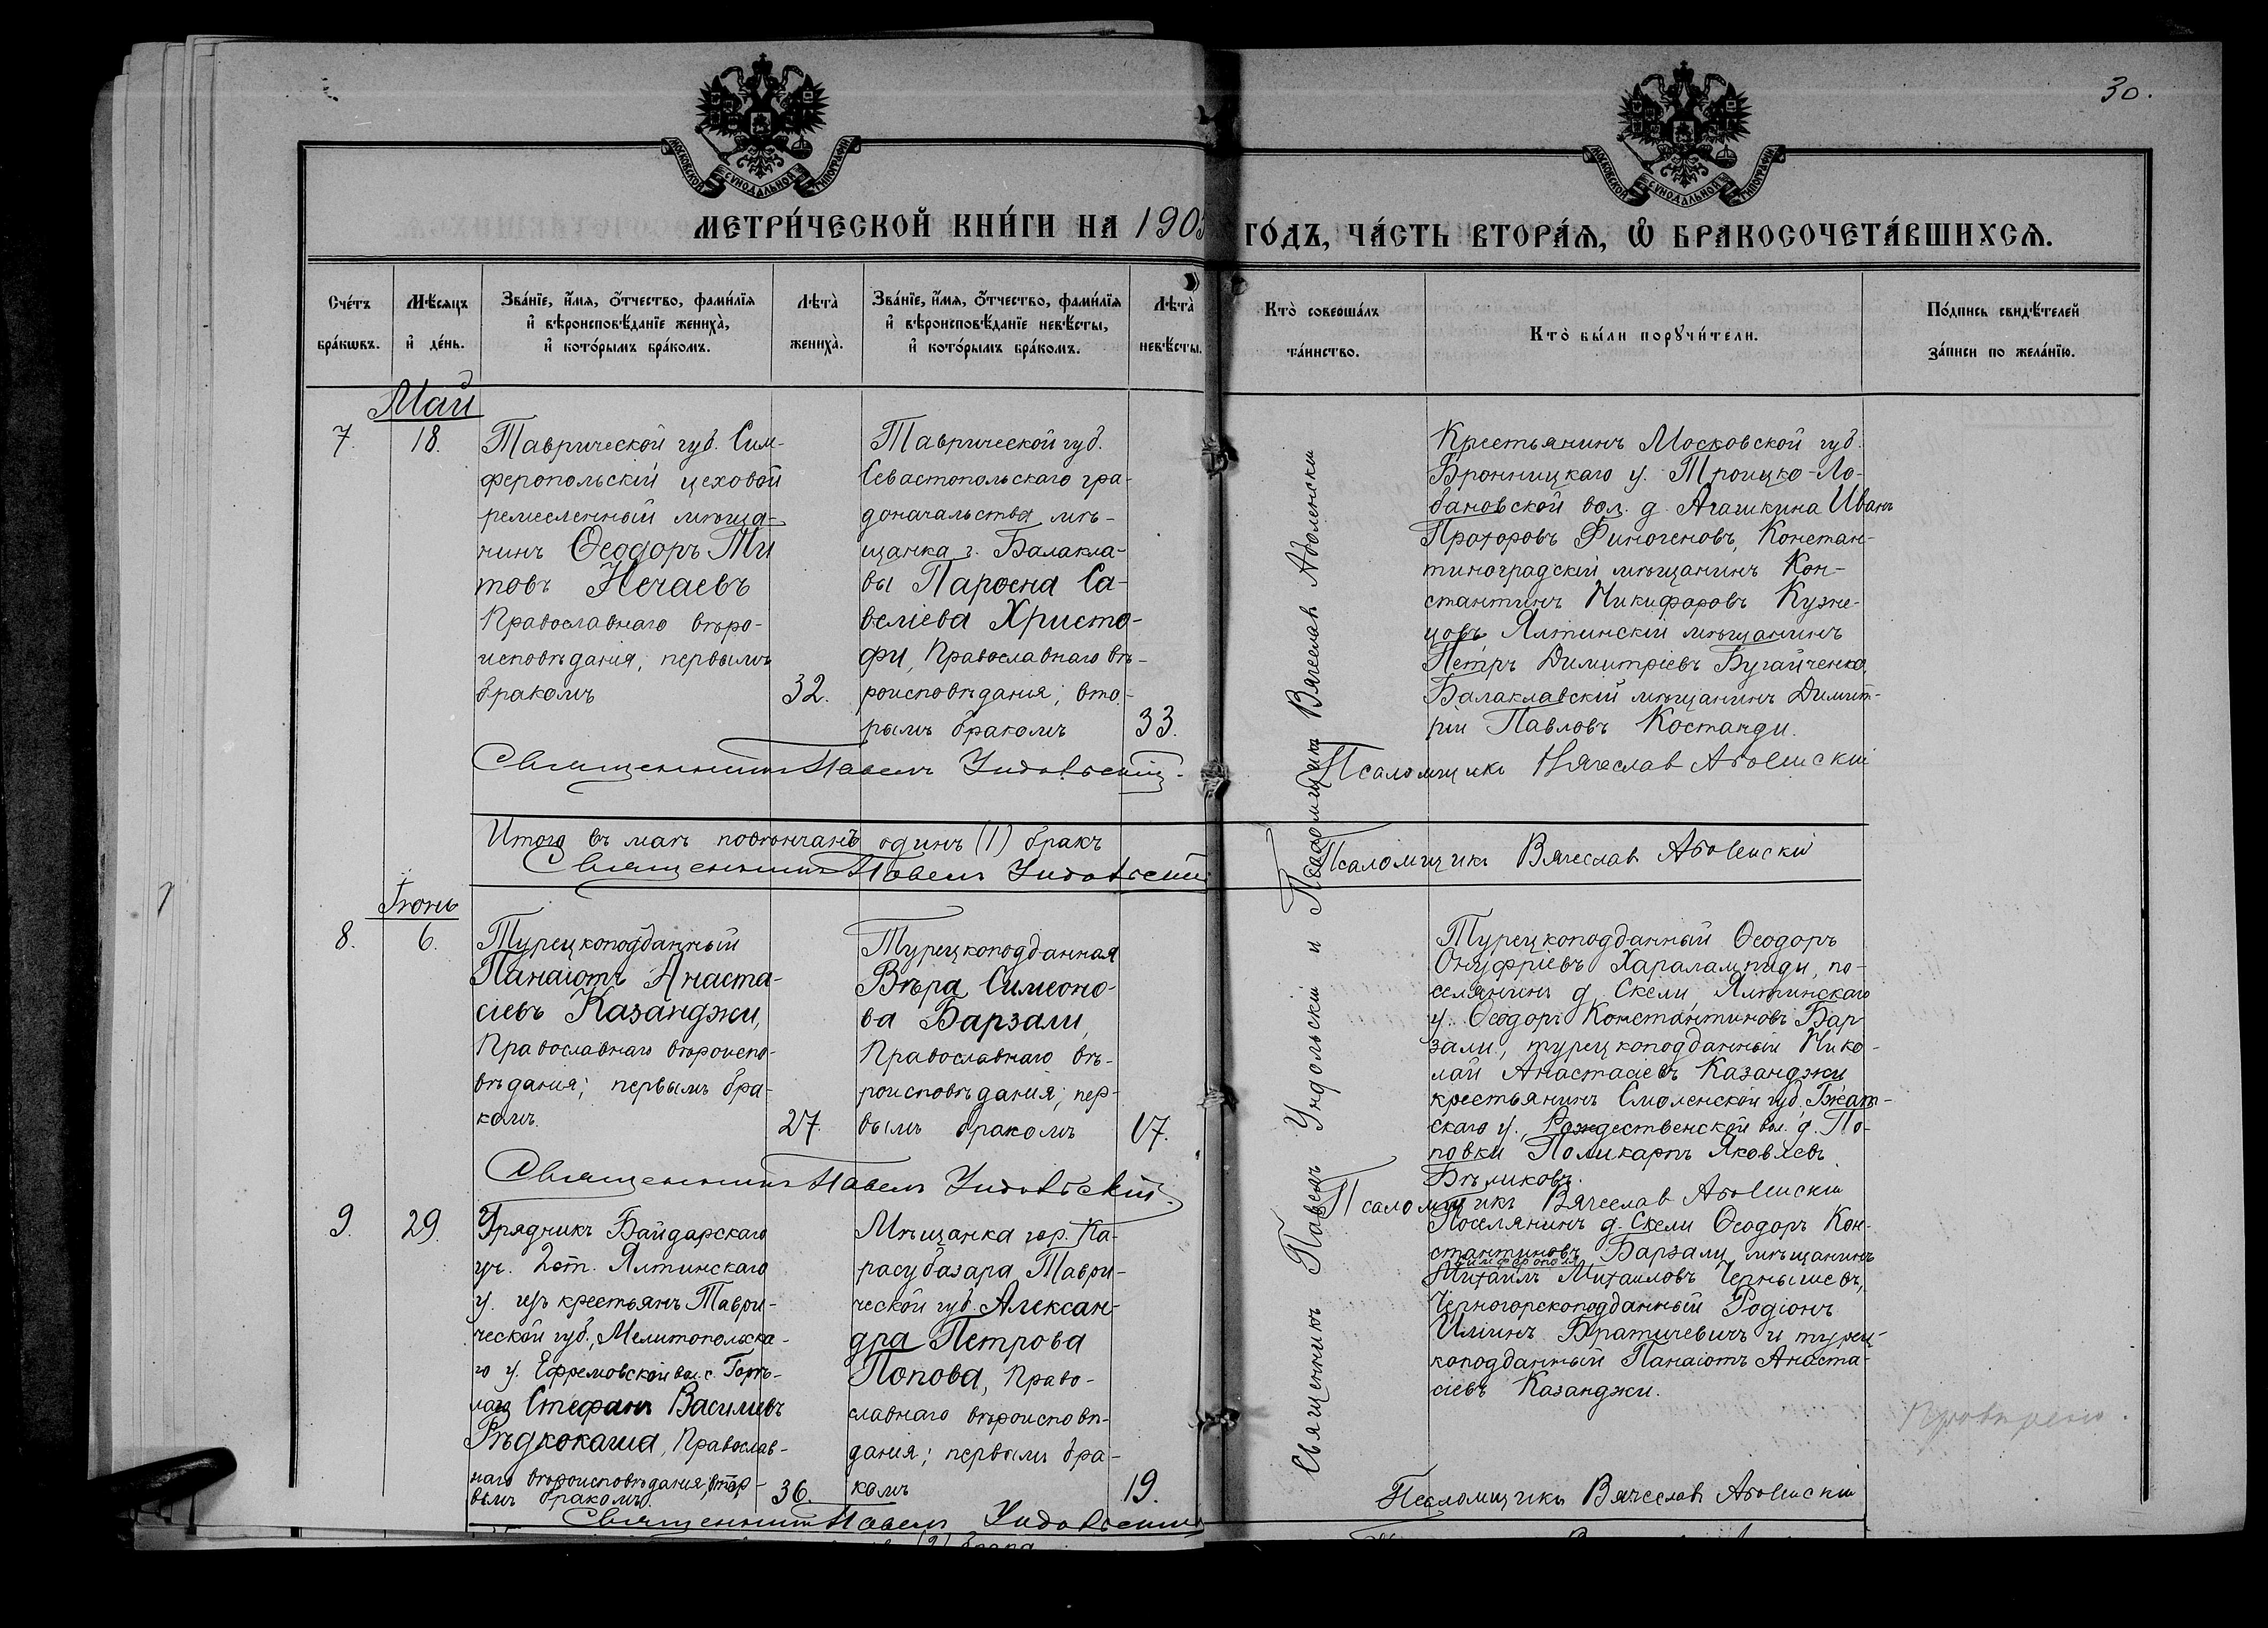 30.
МОСКОВСКОЙ СѴНОДАЛЬНОЙ ТИПОГРАФІИ
МОСКОВСКОЙ СѴНОДАЛЬНОЙ ТИПОГРАФІИ
МЕТРИ́ЧЕСКОЙ КНИ́ГИ НА 1905 ГО́ДЪ, ЧА́СТЬ ВТОРА́Ѧ, Ѡ БРАКОСОЧЕТА́ВШИХСѦ.
Сче́тъ
бра́кѡвъ.
Мѣ́сѧцъ
и де́нь.
Зва́нїе, и́мѧ, ѻ́тчество, фами́лїѧ
и҆ вѣроисповѣ́данїе жениха̀,
и҆ кото́рымъ бра́комъ.
Лѣта̀
жениха̀.
Зва́нїе, и́мѧ, ѻ́тчество, фами́лїѧ
и҆ вѣроисповѣ́данїе невѣ́сты,
и҆ кото́рымъ бра́комъ.
Лѣта̀
невѣ́сты.
Кто̀ соверша́лъ
та́инство.
Кто̀ бы́ли порꙋчи́тели.
По́дпись свидѣ́телей
за́писи по жела́нїю.
Май
7.
18.
Таврической губ. Сим-
феропольскій цеховой
ремесленный мѣща-
нинъ Ѳеодоръ Ти
товъ Нечаевъ
Православнаго вѣро-
исповѣданія, первымъ
бракомъ
32.
Таврической губ.
Севастопольскаго гра-
доначальства мѣ-
щанка г. Балакла-
вы Парѳена Са-
веліева Христо-
фи, Православнаго вѣ-
роисповѣданія, вто-
рымъ бракомъ
33.
Священникъ Павелъ Ундольскій и Псаломщикъ Вячеслав Аболенскій
Крестьянинъ Московской губ.
Бронницкаго у. Троицко-Ло-
бановской вол. д. Агашкина Иванъ
Прохоровъ Финогеновъ, Констан-
тиноградскій мѣщанинъ Кон-
стантинъ Никифоровъ Кузне-
цовъ, Ялтинскій мѣщанинъ
Петръ Димитріевъ Бугайченко,
Балаклавскій мѣщанинъ Димит-
рій Павловъ Костанди.
Священникъ Павелъ Ундольскій.
Псаломщикъ Вячеслав Аболенскій
Итого въ маѣ повѣнчанъ одинъ (1) бракъ
Священникъ Павелъ Ундольскій
Псаломщикъ Вячеслав Аболенскій
Іюнь
8.
6.
Турецкоподданный
Панаіотъ Анаста-
сіевъ Казанджи,
Православнаго вѣроиспо-
вѣданія; первымъ бра-
комъ.
27.
Турецкоподданная
Вѣра Симеоно-
ва Барзали,
Православнаго вѣ-
роисповѣданія, пер-
вымъ бракомъ
17.
Турецкоподданный Ѳеодоръ
Онуфріевъ Харалампиди, по-
селянинъ д. Скели, Ялтинскаго
у. Ѳеодоръ Константиновъ Бар
зали, турецкоподданный Нико-
лай Анастасіевъ Казанджи
крестьянинъ Смоленской губ. Гжат-
скаго у., Рождественской вол. д. По-
повки Поликарпъ Яковлевъ
Бѣликовъ.
Священникъ Павелъ Ундольскій.
Псаломщикъ Вячеслав Аболенскій
9.
29.
Урядникъ Байдарскаго
уч. 2 ст. Ялтинскаго
у. изъ крестьянъ Таври-
ческой губ., Мелитопольска-
го у. Ефремовской вол. с. Горѣ-
лаго Стефанъ Василіевъ
Рѣдкокаша, Православ-
наго вѣроисповѣданія,
бракомъ.
36.
Мѣщанка гор. Ка-
расубазара Таври-
ческой губ. Алексан-
дра Петрова
Попова, Право-
славнаго вѣроисповѣ-
данія; первымъ бра-
комъ
19.
Поселянинъ д. Скели Ѳеодоръ Кон-
стантиновъ Барзали, мѣщанинъ
Симферополя
Михаилъ Михаиловъ Чернышевъ,
Черногорскоподданный Родіонъ
Иліинъ Братичевичъ и турец-
коподданный Панаіотъ Анаста-
сіевъ Казанджи.
Провѣрено.
Священникъ Павелъ Ундольскій
Псаломщикъ Вячеславъ Аболенскій